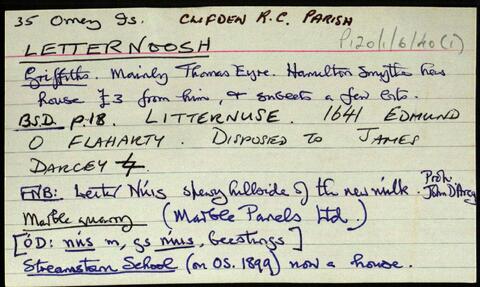 35 Omey Is. CLIFDEN R.C. PARISH
P120/1/6/40(1)
LETTERNOOSH
Griffiths. Mainly Thomas Eyre. Hamilton Smythe has
house £3 from him, & sublets a few lots.
B.S.D. p.18. LITTERNUSE. 1641 EDMUND
O FLAHARTY. DISPOSED TO JAMES
DARCEY
FNB: Leitir Núis spewy hillside of the new milk. Prop. John D'Arcy
Marble quarry (Marble Panels Ltd.)
[ÓD: nús m, gs núis, beestings]
Streamstown School (on OS. 1899) now a house.